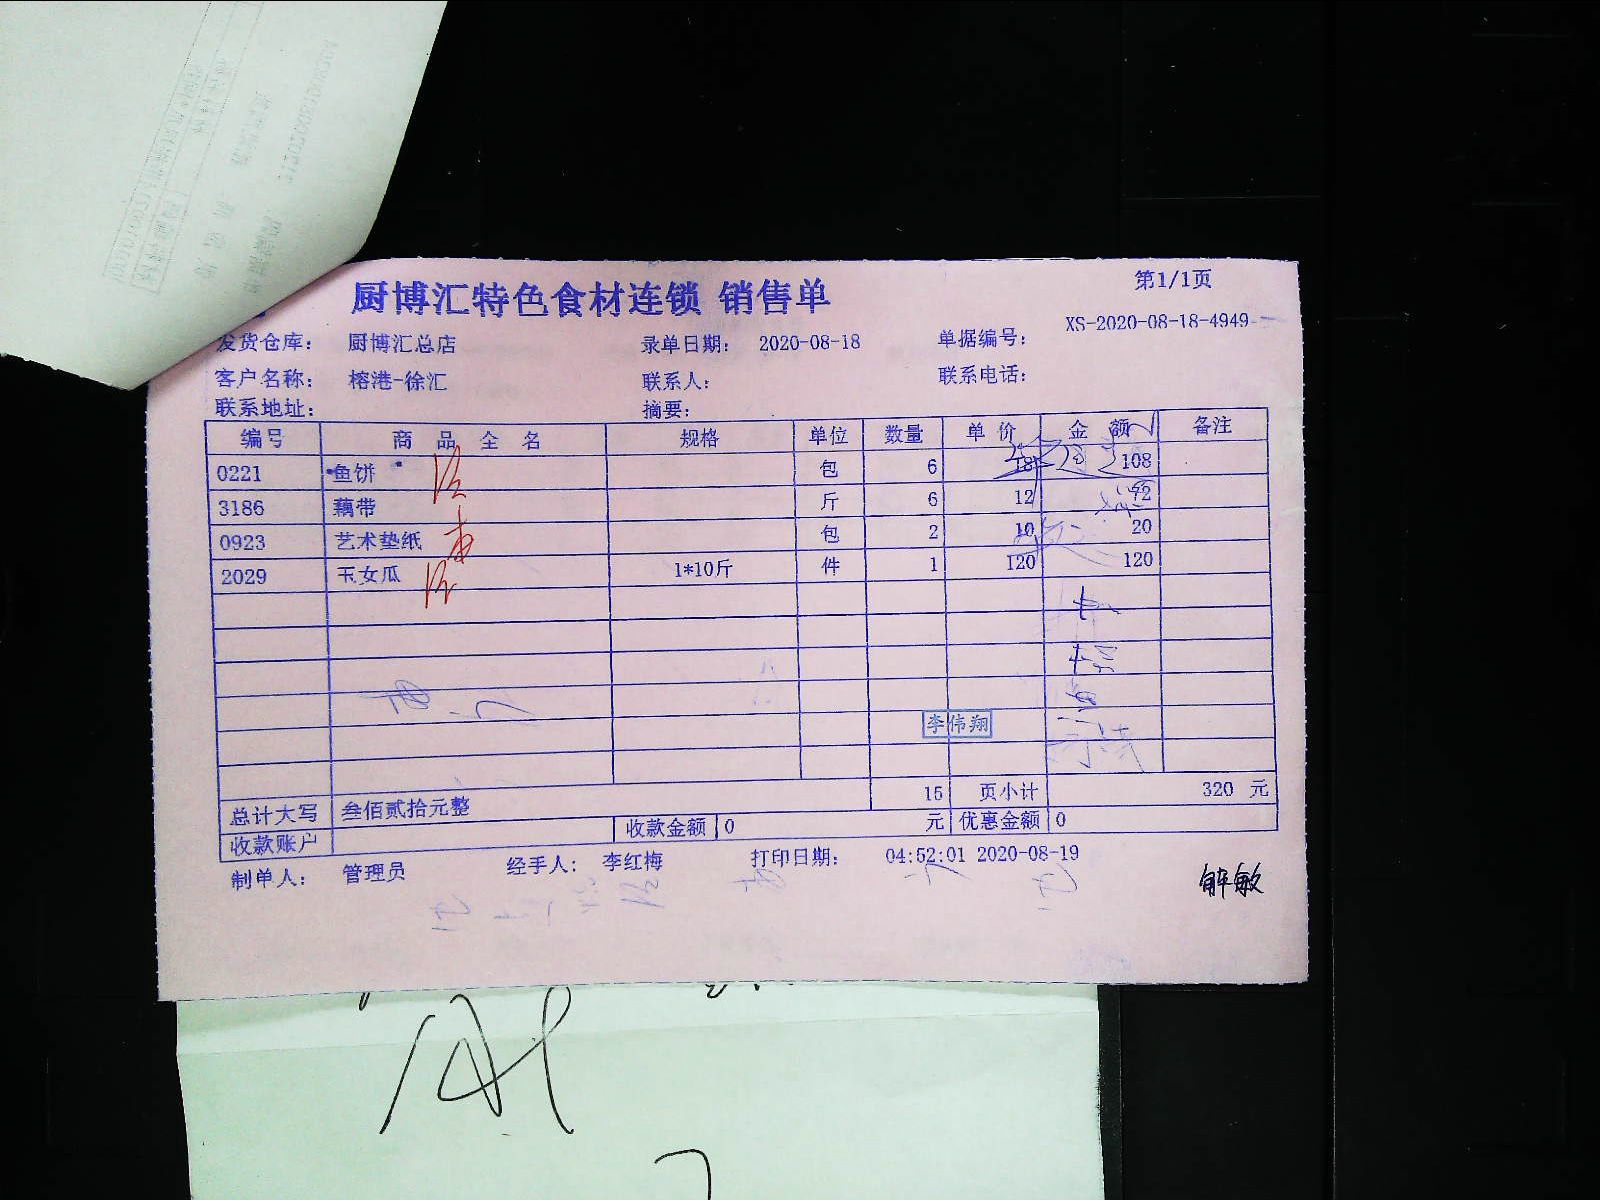 第1/1页
厨博汇特色食材连锁 销售单
发货仓库： 厨博汇总店 录单日期： 2020-08-18 单据编号： XS-2020-08-18-4949
客户名称： 榕港-徐汇 联系人： 联系电话：
联系地址： 摘要：
编号 商品全名 规格 单位 数量 单价 金额 备注
0221 鱼饼 包 6 18 108
3186 藕带 斤 6 12 72
0923 艺术垫纸 包 2 10 20
2029 玉女瓜 1*10斤 件 1 120 120
李伟翔
总计大写 叁佰贰拾元整 15 页小计 320 元
收款账户 收款金额 0 元 优惠金额 0
制单人： 管理员 经手人： 李红梅 打印日期： 04:52:01 2020-08-19
解敏